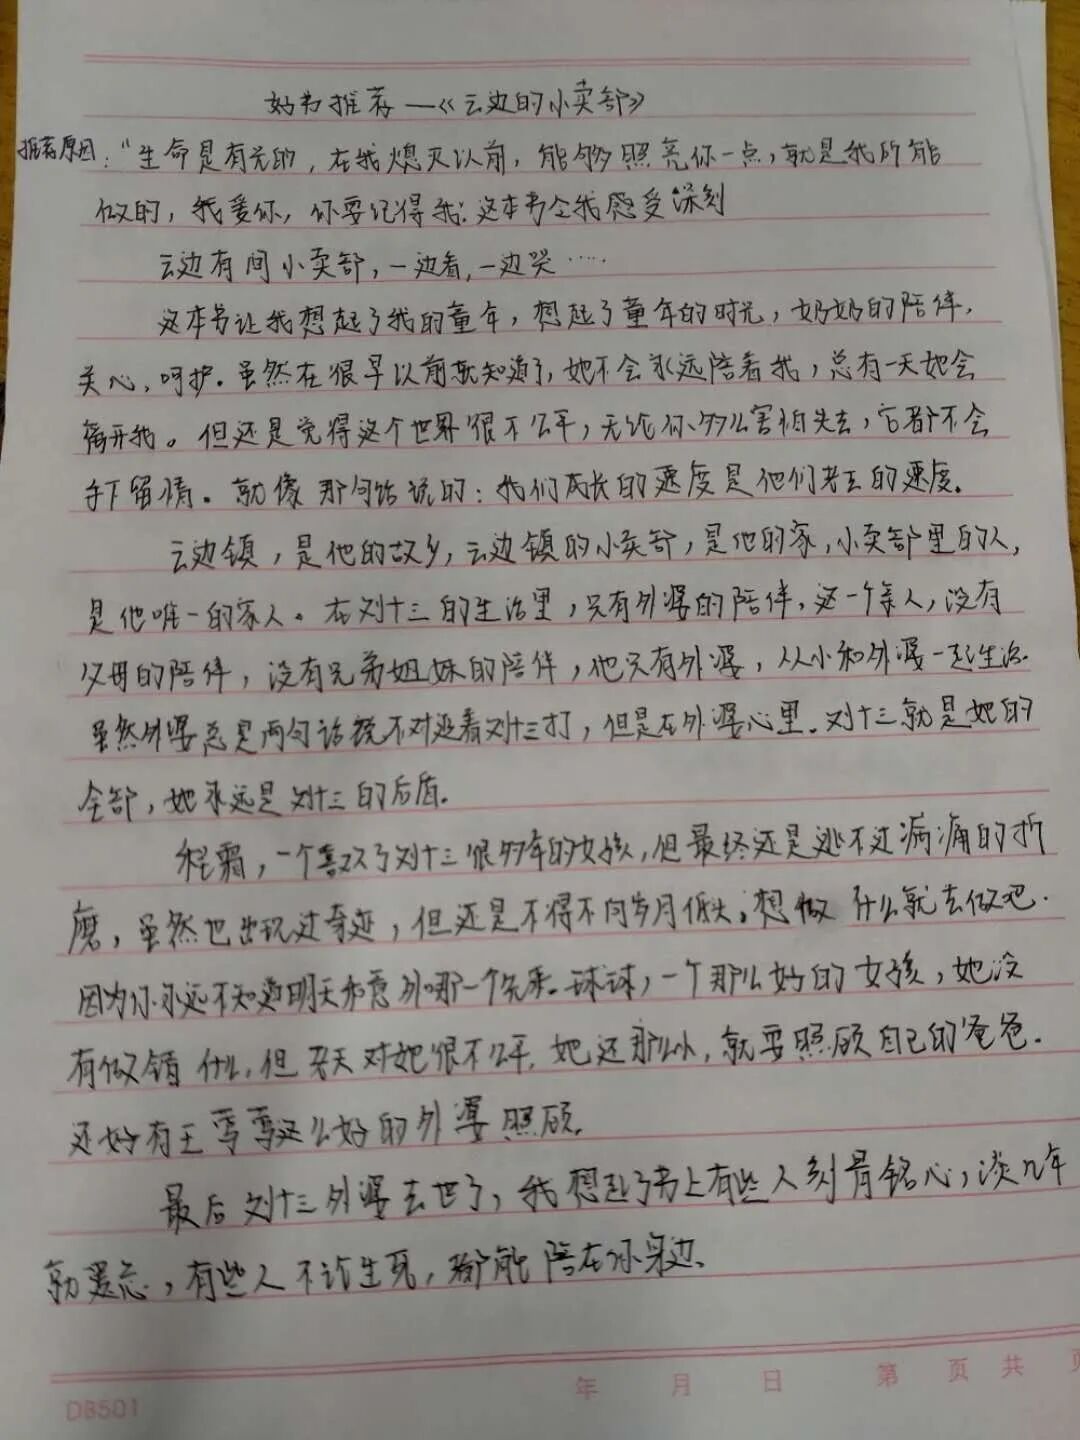 好书推荐—《云边的小卖部》
推荐原因：“生命是有光的，在我熄灭以前，能够照亮你一点，就是我所能
做的，我爱你，你要记得我。这本书令我感受深刻
云边有间小卖部，一边看，一边哭……
这本书让我想起了我的童年，想起了童年的时光，奶奶的陪伴，
关心，呵护。虽然在很早以前就知道了，她不会永远陪着我，总有一天她会
离开我。但还是觉得这个世界很不公平，无论你多么害怕失去，它都不会
手下留情。就像那句话说的：我们成长的速度是他们老去的速度。
云边镇，是他的故乡，云边镇的小卖部，是他的家，小卖部里的人，
是他唯一的家人。在刘十三的生活里，只有外婆的陪伴，这一个亲人，没有
父母的陪伴，没有兄弟姐妹的陪伴，他只有外婆，从小和外婆一起生活.
虽然外婆总是两句话说不对追着刘十三打，但是在外婆心里.刘十三就是她的
全部，她永远是刘十三的后盾.
程霜，一个喜欢了刘十三很多年的女孩，但最终还是逃不过病痛的折
磨，虽然也出现过奇迹，但还是不得不向岁月低头。想做什么就去做吧.
因为你永远不知道明天和意外哪一个先来.球球，一个那么好的女孩，她没
有做错什么，但老天对她很不公平，她还那么小，就要照顾自己的爸爸.
还好有王莺莺这么好的外婆照顾.
最后刘十三外婆去世了，我想起了书上有些人刻骨铭心，没几年
就遗忘，有些人不论生死，都能陪在你身边.
年 月 日 第 页 共 页
DB501